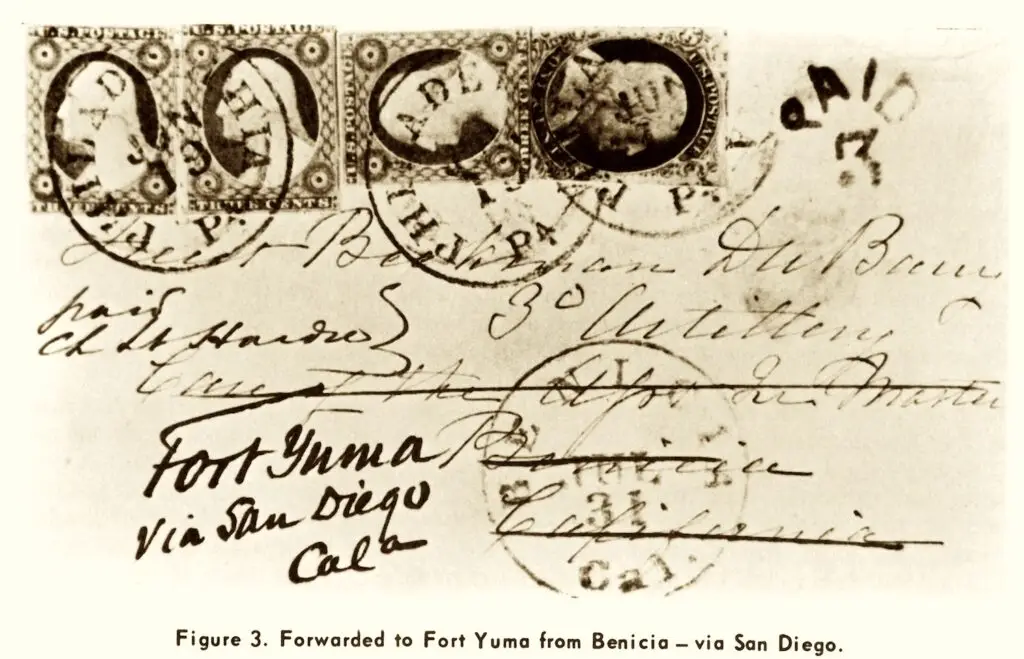 U.S. POSTAGE
U.S. POSTAGE
U.S. POSTAGE
U.S. POSTAGE
THREE CENTS
THREE CENTS
THREE CENTS
PHILADELPHIA Pa.
PHILADELPHIA PA
JUN
Pa.
PAID
3
Lieut Beekman Du Barry
3d Artillery
paid
Ch
Care of the Master
Benicia
California
Fort Yuma
Via San Diego
Cala
JUL
31
Cal.
Figure 3. Forwarded to Fort Yuma from Benicia – via San Diego.